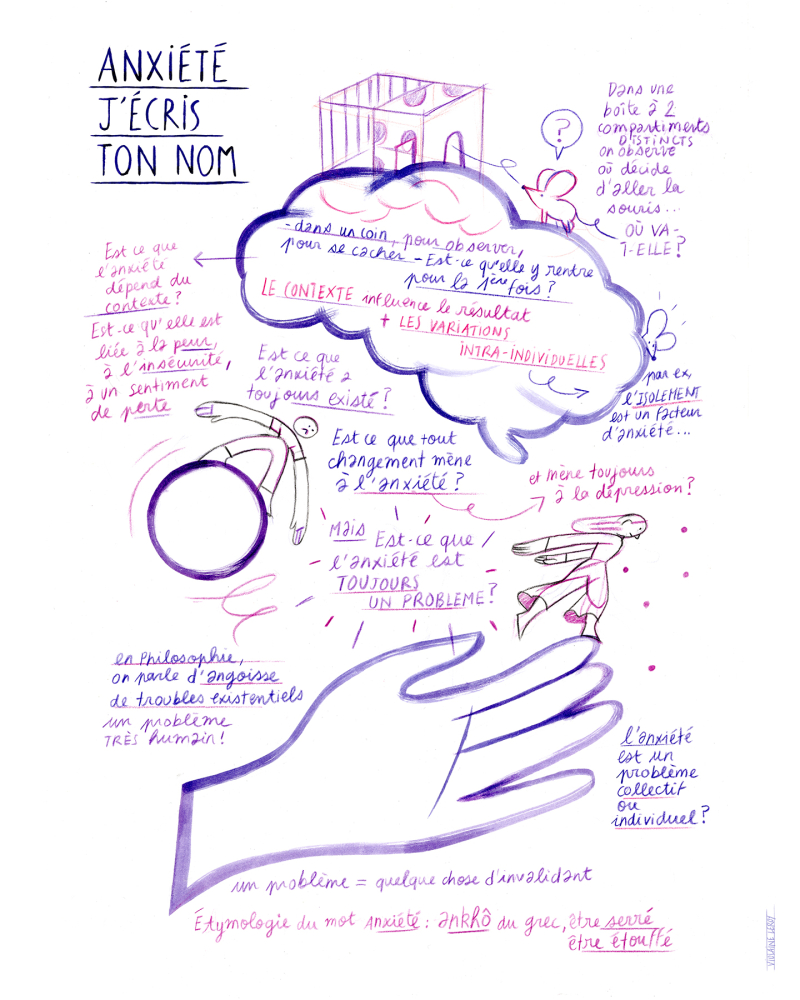 ANXIÉTÉ
J'ÉCRIS
TON NOM
Dans une
boîte à 2
compartiments
DISTINCTS
on observe
où décide
d'aller la
souris...
OÙ VA-
T-ELLE?
?
- dans un coin, pour observer,
pour se cacher - Est-ce qu'elle y rentre
pour la 1ère fois?
LE CONTEXTE influence le résultat
+ LES VARIATIONS
INTRA-INDIVIDUELLES
Est ce que
l'anxiété
dépend du
contexte?
Est-ce qu'elle est
liée à la peur,
à l'insécurité,
à un sentiment
de perte
par ex,
l'ISOLEMENT
est un facteur
d'anxiété...
Est ce que
l'anxiété a
toujours existé?
Est ce que tout
changement mène
à l'anxiété?
et mène toujours
à la dépression?
Mais Est-ce que
l'anxiété est
TOUJOURS
UN PROBLEME?
en Philosophie,
on parle d'angoisse
de troubles existentiels
un problème
TRÈS humain!
l'anxiété
est un
problème
collectif
ou
individuel?
un problème = quelque chose d'invalidant
Étymologie du mot anxiété: ankhô du grec, être serré
être étouffé
VIOLAINE LEROY